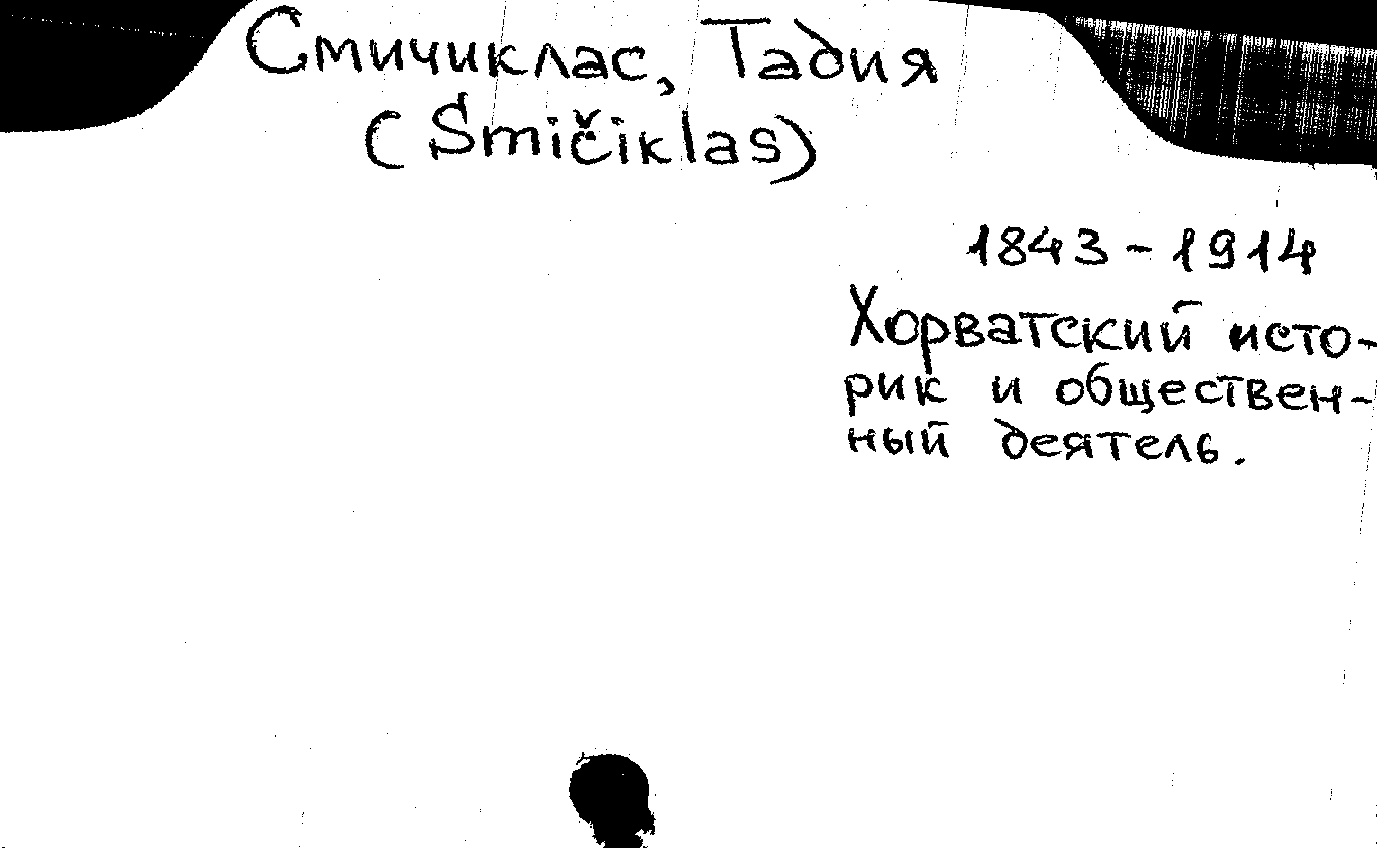 Смичиклас, Тадия
(Smičiklas)
1843 - 1914
Хорватский исто-
рик и обществен-
ный деятель.